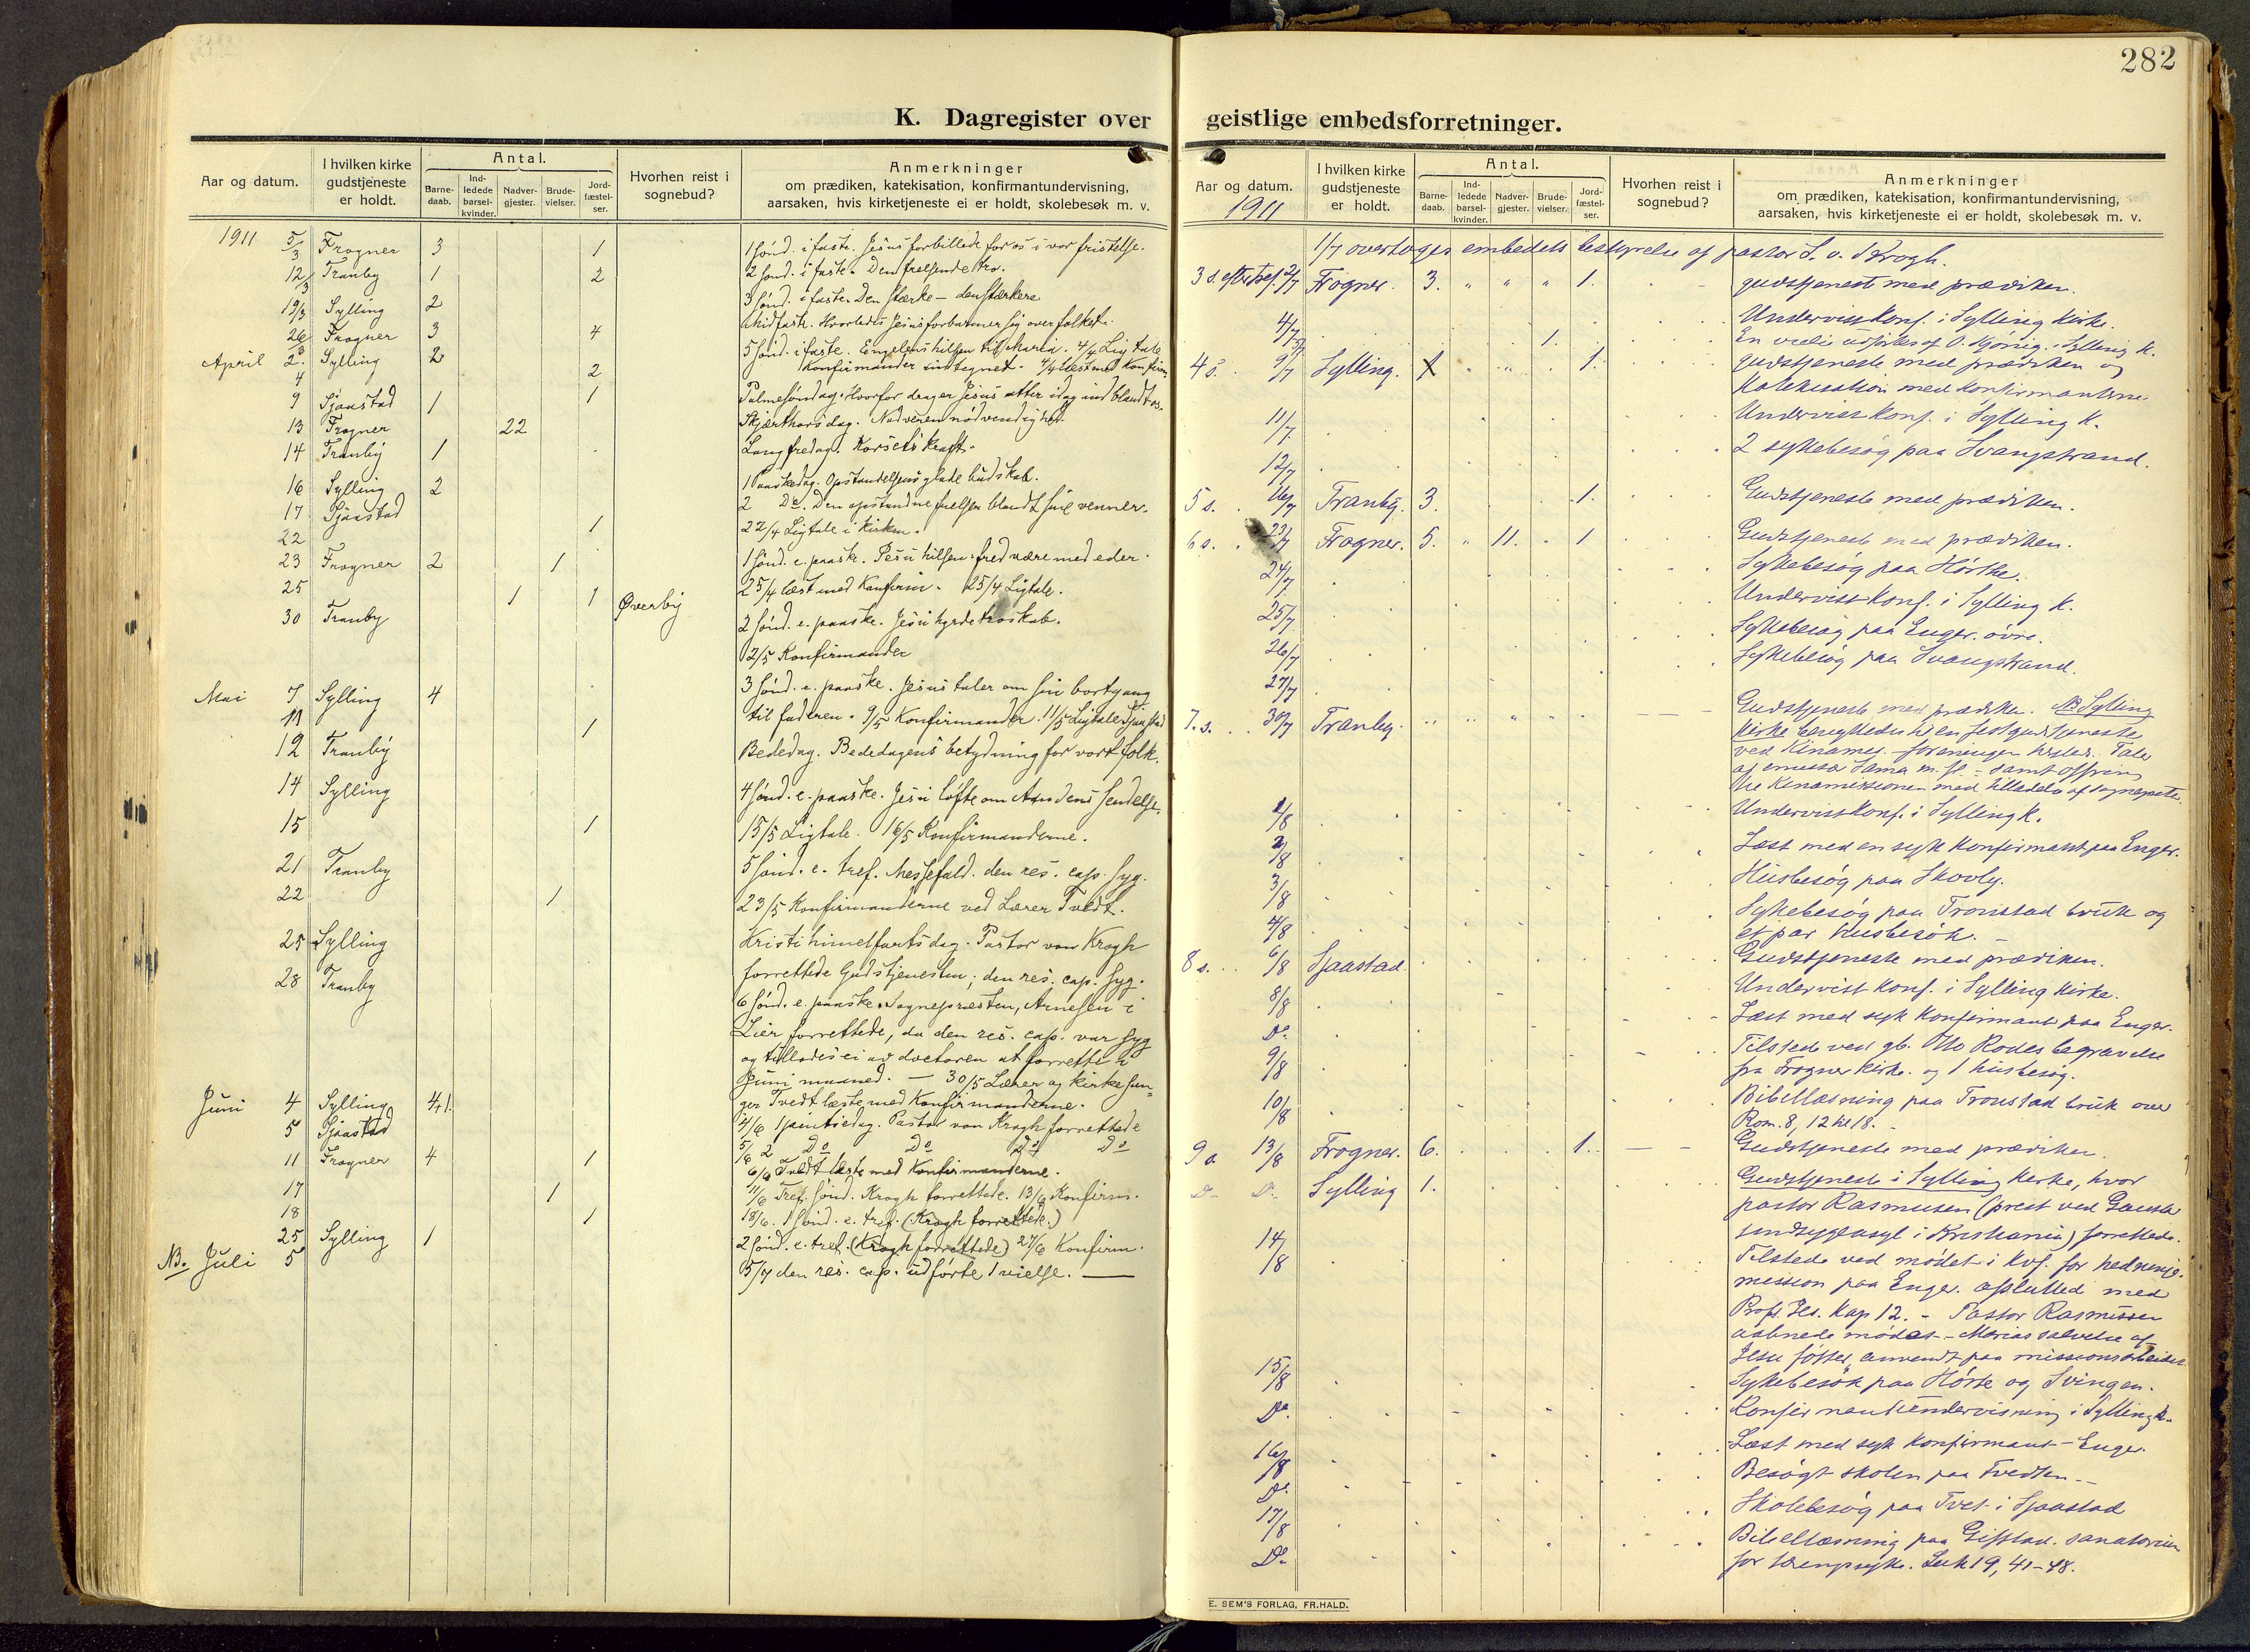 282
K. Dagregister over geistlige embedsforretninger.
Aar og datum.
I hvilken kirke gudstjeneste er holdt.
Antal.
Barne-daab.
Ind-ledede barsel-kvinder.
Nadver-gjester.
Brude-vielser.
Jord-fæstel-ser.
Hvorhen reist i sognebud?
Anmerkninger
om prædiken, katekisation, konfirmantundervisning,
aarsaken, hvis kirketjeneste ei er holdt, skolebesøk m. v.
1911 5/3 Frogner 3 1 1 sønd. i faste. Jesus forbillede for os i vor fristelse.
12/3 Tranby 1 2 2 sønd. i faste. Den frelsende tro.
19/3 Sylling 2 3 sønd. i faste. Den stærke – den stærkere
26/3 Frogner 3 4 Midfaste. Hvorledes Jesus forbarmer sig over folket.
April 2 Sylling 2 5 sønd. i faste. Engelens hilsen til Maria. 4/4 Ligtale
4 2 Konfirmander indtegnet. 4/4 læst med Konfirm.
9 Sjaastad 1 1 Palmesøndag. Hvorfor drager Jesus atter idag ind blandt os.
13 Frogner 22 Skjærthorsdag. Nadverens nødvendighed.
14 Tranby 1 Langfredag. Korsets kraft.
16 Sylling 2 1 Paaskedag. Opstandelsens glade budskab.
17 Sjaastad 2 Do. Den opstandne frelser blandt sine venner.
22 1 22/4 Ligtale i kirken.
23 Frogner 2 1 1 sønd. e. paaske. Jesu hilsen: fred være med eder.
25 1 1 Øverby 25/4 læst med Konfirm. 25/4 Ligtale.
30 Tranby 2 sønd. e. paaske. Jesu hyrdetroskab.
2/5 Konfirmander
Mai 7 Sylling 4 3 sønd. e. paaske. Jesus taler om sin bortgang
11 1 til faderen. 9/5 Konfirmander. 11/5 Ligtale Sjaastad
12 Tranby Bededag. Bededagens betydning for vort folk.
14 Sylling 4 sønd. e. paaske. Jesu løfte om Aandens sendelse.
15 1 15/5 Ligtale. 16/5 Konfirmanderne.
21 Tranby 5 sønd. e. tref. Messefald. den res. cap. syg.
22 1 23/5 Konfirmanderne ved Lærer Tvedt.
25 Sylling Kristi himmelfartsdag. Pastor von Krogh
forrettede Gudstjenesten; den res. cap. syg.
28 Tranby 6 sønd. e. paaske. Sognepræsten, Arnesen i
Lier forrettede, da den res. cap. var syg
og tillodes ei av doctoren at forrette i
Juni maaned. — 30/5 Lærer og kirkesan-
ger Tvedt læste med Konfirmanderne.
Juni 4 Sylling 4+1. 4/6 1 pintsedag. Pastor von Krogh forrettede
5 Sjaastad 5/6 2 Do Do Do Do
6/6 Tvedt læste med Konfirmanderne.
11 Frogner 4 1 11/6 Tref. sønd. Krogh forrettede. 13/6 Konfirm.
17 1
18 1 18/6. 1 sønd. e. tref. (Krogh forrettede.)
25 Sylling 1 2 sønd. e. tref. (Krogh forrettede) 27/6 Konfirm.
NB. Juli 5 5/7 den res. cap. udførte 1 vielse. —
Aar og datum.
1911
I hvilken kirke gudstjeneste er holdt.
Antal.
Barne-daab.
Ind-ledede barsel-kvinder.
Nadver-gjester.
Brude-vielser.
Jord-fæstel-ser.
Hvorhen reist i sognebud?
Anmerkninger
om prædiken, katekisation, konfirmantundervisning,
aarsaken, hvis kirketjeneste ei er holdt, skolebesøk m. v.
1/7 overtoges embedets bestyrelse af pastor S. v. Krogh.
3 s. efter tref. 2/7 Frogner. 3. " " " 1. gudstjeneste med prædiken.
4/7 Undervist konf. i Sylling kirke.
5/7 1. En vielse udførtes af Sylling k.
4 s. 9/7 Sylling. 1. gudstjeneste med prædiken og
katekisation med konfirmanterne
11/7 Undervist konf. i Sylling k.
12/7 2 sykebesøg paa Svangstrand.
5 s. 16/7 Tranby. 3. 1. Gudstjeneste med prædiken.
6 s. 23/7 Frogner. 5. " 11. 1 Gudstjeneste med prædiken.
24/7 Sykebesøg paa Hørthe.
25/7 Undervist konf. i Sylling k.
26/7 Sykebesøg paa Enger øvre.
27/7 Sykebesøg paa Svangstrand.
7. s. 30/7 Tranby. Gudstjeneste med prædiken. NB Sylling
kirke benyttedes til en festgudstjeneste
ved Kinamis.-foreningen Tale
af m. fl. – samt ofring
til Kinamissionen med tilladelse af sognepræsten.
1/8 Undervist konf. i Sylling k.
2/8 Læst med en syk konfirmant paa Enger.
3/8 Husbesøg paa Skovly.
4/8 Sykebesøg paa Tronstad bruk og
et par husbesøk. –
8 s. 6/8 Sjaastad. Gudstjeneste med prædiken.
8/8 Undervist konf. i Sylling kirke.
Do Læst med syk konfirmant paa Enger.
9/8 Tilstede ved gb. Rodes begravelse
fra Frogner kirke. og 1 husbesøg.
10/8 Bibellæsning paa Tronstad bruk over
Rom. 8, 12 til 18. –
9 s. 13/8 Frogner. 6. 1. Gudstjeneste med prædiken.
D– D– Sylling 1. Gudstjeneste i Sylling kirke, hvor
pastor Rasmusen (prest ved Gausta
sindsygeasyl i Kristiania) forrettede.
14/8 Tilstede ved mødet i kvf. for hedninge-
mission paa Enger. afslutted med
Prof. Jes. Kap 12. – Pastor Rasmussen
aabnede mødet – Marias salvelse af
Jesu føtter, anvendt paa missionsarbeidet.
15/8 Sykebesøk paa Hørte og Svingen.
Do. Konfirmantundervisning i Sylling k.
16/8 Læst med syk konfirmant – Enger.
Do. Besøgt skolen paa Tvedten –
17/8 Skolebesøg paa Tvet i Sjaastad
Do Bibellæsning paa sanatorium
for . Luk 19, 41–48.
E. SEM'S FORLAG, FR.HALD.